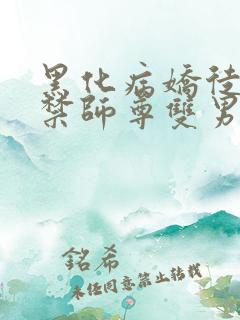 黑化病嬌徒
禁師尊雙男
銘希
未經同意禁止轉載